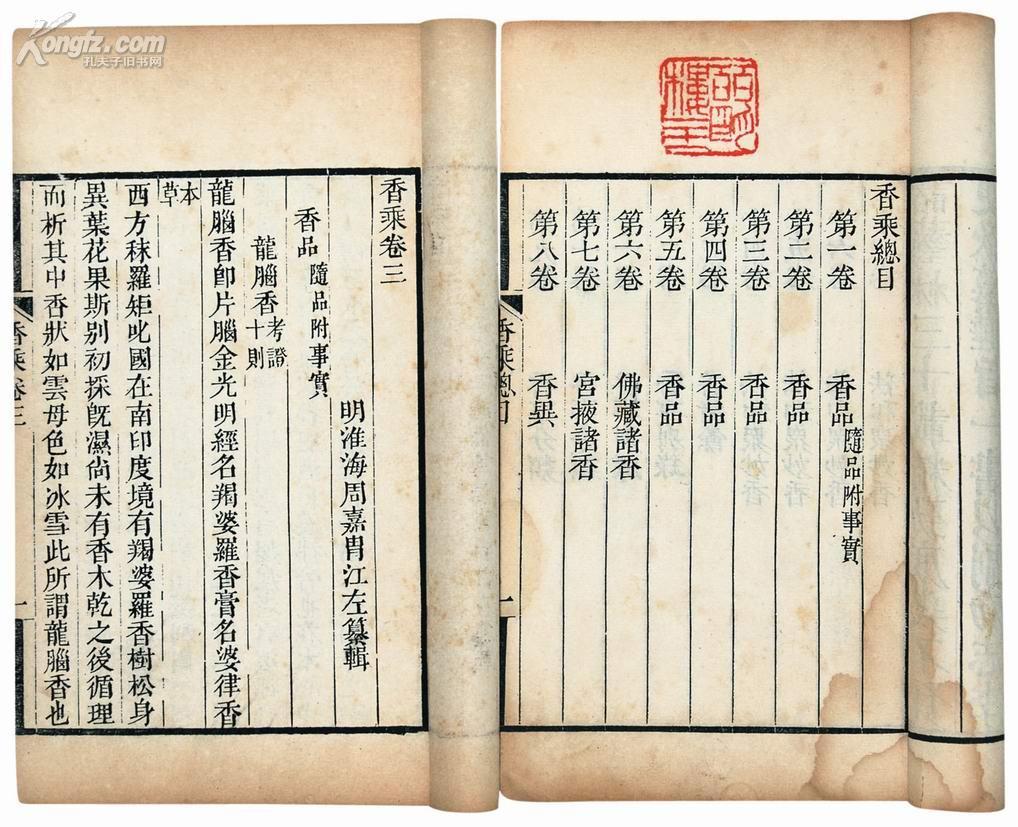 香乘總目
第一卷 香品隨品附事實
第二卷 香品
第三卷 香品
第四卷 香品
第五卷 香品
第六卷 佛藏諸香
第七卷 宮掖諸香
第八卷 香異
香乘總目
一
香乘卷三
明淮海周嘉胄江左纂輯
香品隨品附事實
龍腦香考證十則
龍腦香卽片腦金光明經名羯婆羅香膏名婆律香
本草
西方秣羅矩吒國在南印度境有羯婆羅香樹松身
異葉花果斯别初採旣濕尚未有香木乾之後循理
而析其中香狀如雲母色如冰雪此所謂龍腦香也
香乘卷三
一
Kongfz.com
孔夫子旧书网